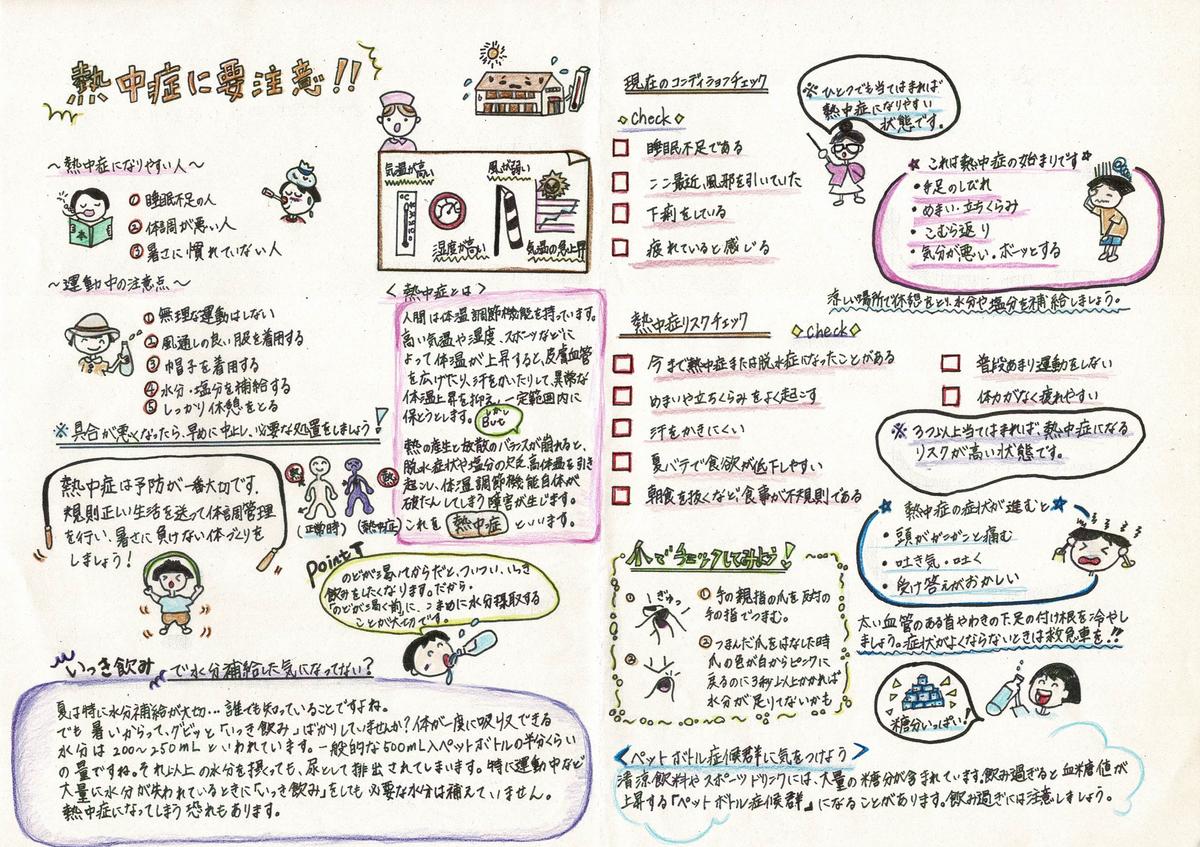 熱中症に要注意!!
～熱中症になりやすい人～
① 睡眠不足の人
② 体調が悪い人
③ 暑さに慣れていない人
～運動中の注意点～
① 無理な運動はしない
② 風通しの良い服を着用する
③ 帽子を着用する
④ 水分・塩分を補給する
⑤ しっかり休憩をとる
※具合が悪くなったら、早めに中止し、必要な処置をしましょう!
気温が高い
風が弱い
湿度が高い
気温の急上昇
<熱中症とは>
人間は体温調節機能を持っています。
高い気温や湿度、スポーツなどに
よって体温が上昇すると、皮膚血管
を広げたり、汗をかいたりして、異常な
体温上昇を抑え、一定範囲内に
保とうとします。
しかし
But
熱の産生と放散のバランスが崩れると、
脱水症状や塩分の欠乏、高体温を引き
起こし、体温調節機能自体が
破たんしてしまう障害が生じます。
これを 熱中症 といいます。
熱
熱
(正常時)
(熱中症)
熱中症は予防が一番大切です。
規則正しい生活を送って体調管理
を行い、暑さに負けない体づくりを
しましょう!
point
のどが渇いてからだと、ついつい、いっき
飲みをしたくなります。だから、
のどが渇く前に、こまめに水分採取する
ことが大切です。
いっき飲みで水分補給した気になってない?
夏は特に水分補給が大切…誰でも知っていることですよね。
でも暑いからって、グビッと「いっき飲み」ばかりしていませんか?体が一度に吸収できる
水分は200～250mLといわれています。一般的な500mL入ペットボトルの半分くらい
の量ですね。それ以上の水分を摂っても、尿として排出されてしまいます。特に運動中など
大量に水分が失われているときに「いっき飲み」をしても必要な水分は補えていません。
熱中症になってしまう恐れもあります。
現在のコンディションチェック
check
睡眠不足である
ここ最近、風邪を引いていた
下痢をしている
疲れていると感じる
※ひとつでも当てはまれば
熱中症になりやすい
状態です。
これは熱中症の始まりです
・手足のしびれ
・めまい・立ちくらみ
・こむら返り
・気分が悪い、ボーッとする
涼しい場所で休憩をとり、水分や塩分を補給しましょう。
熱中症リスクチェック
check
今まで熱中症または脱水症になったことがある
めまいや立ちくらみをよく起こす
汗をかきにくい
夏バテで食欲が低下しやすい
朝食を抜くなど食事が不規則である
普段あまり運動をしない
体力がなく疲れやすい
※3つ以上当てはまれば、熱中症になる
リスクが高い状態です。
熱中症の症状が進むと
・頭がガンガンと痛む
・吐き気・吐く
・受け答えがおかしい
太い血管のある首やわきの下、足の付け根を冷やし
ましょう。症状がよくならないときは救急車を!!
爪でチェックしてみよう!
① ぎゅっ
① 手の親指の爪を反対の
手の指でつまむ。
②
② つまんだ爪をはなした時
爪の色が白からピンクに
戻るのに3秒以上かかれば
水分が足りてないかも
糖分いっぱい!
<ペットボトル症候群に気をつけよう>
清涼飲料やスポーツドリンクには、大量の糖分が含まれています。飲み過ぎると血糖値が
上昇する「ペットボトル症候群」になることがあります。飲み過ぎには注意しましょう。